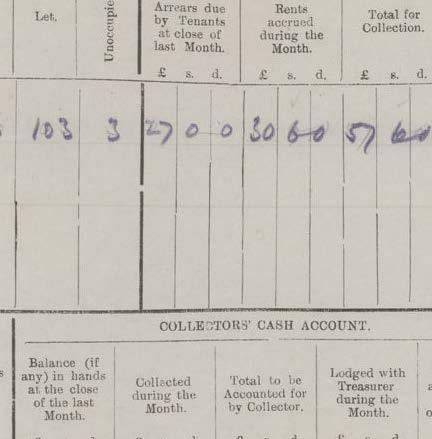 Let.
Unoccupie
Arrears due
by Tenants
at close of
last Month.
£ s. d.
Rents
accrued
during the
Month.
£ s. d.
Total for
Collection.
£ s. d.
103 3 27 0 0 30 6 0 57 6 0
COLLECTORS' CASH ACCOUNT.
Balance (if
any) in hands
at the close
of the last
Month.
Collected
during the
Month.
Total to be
Accounted for
by Collector.
Lodged with
Treasurer
during the
Month.